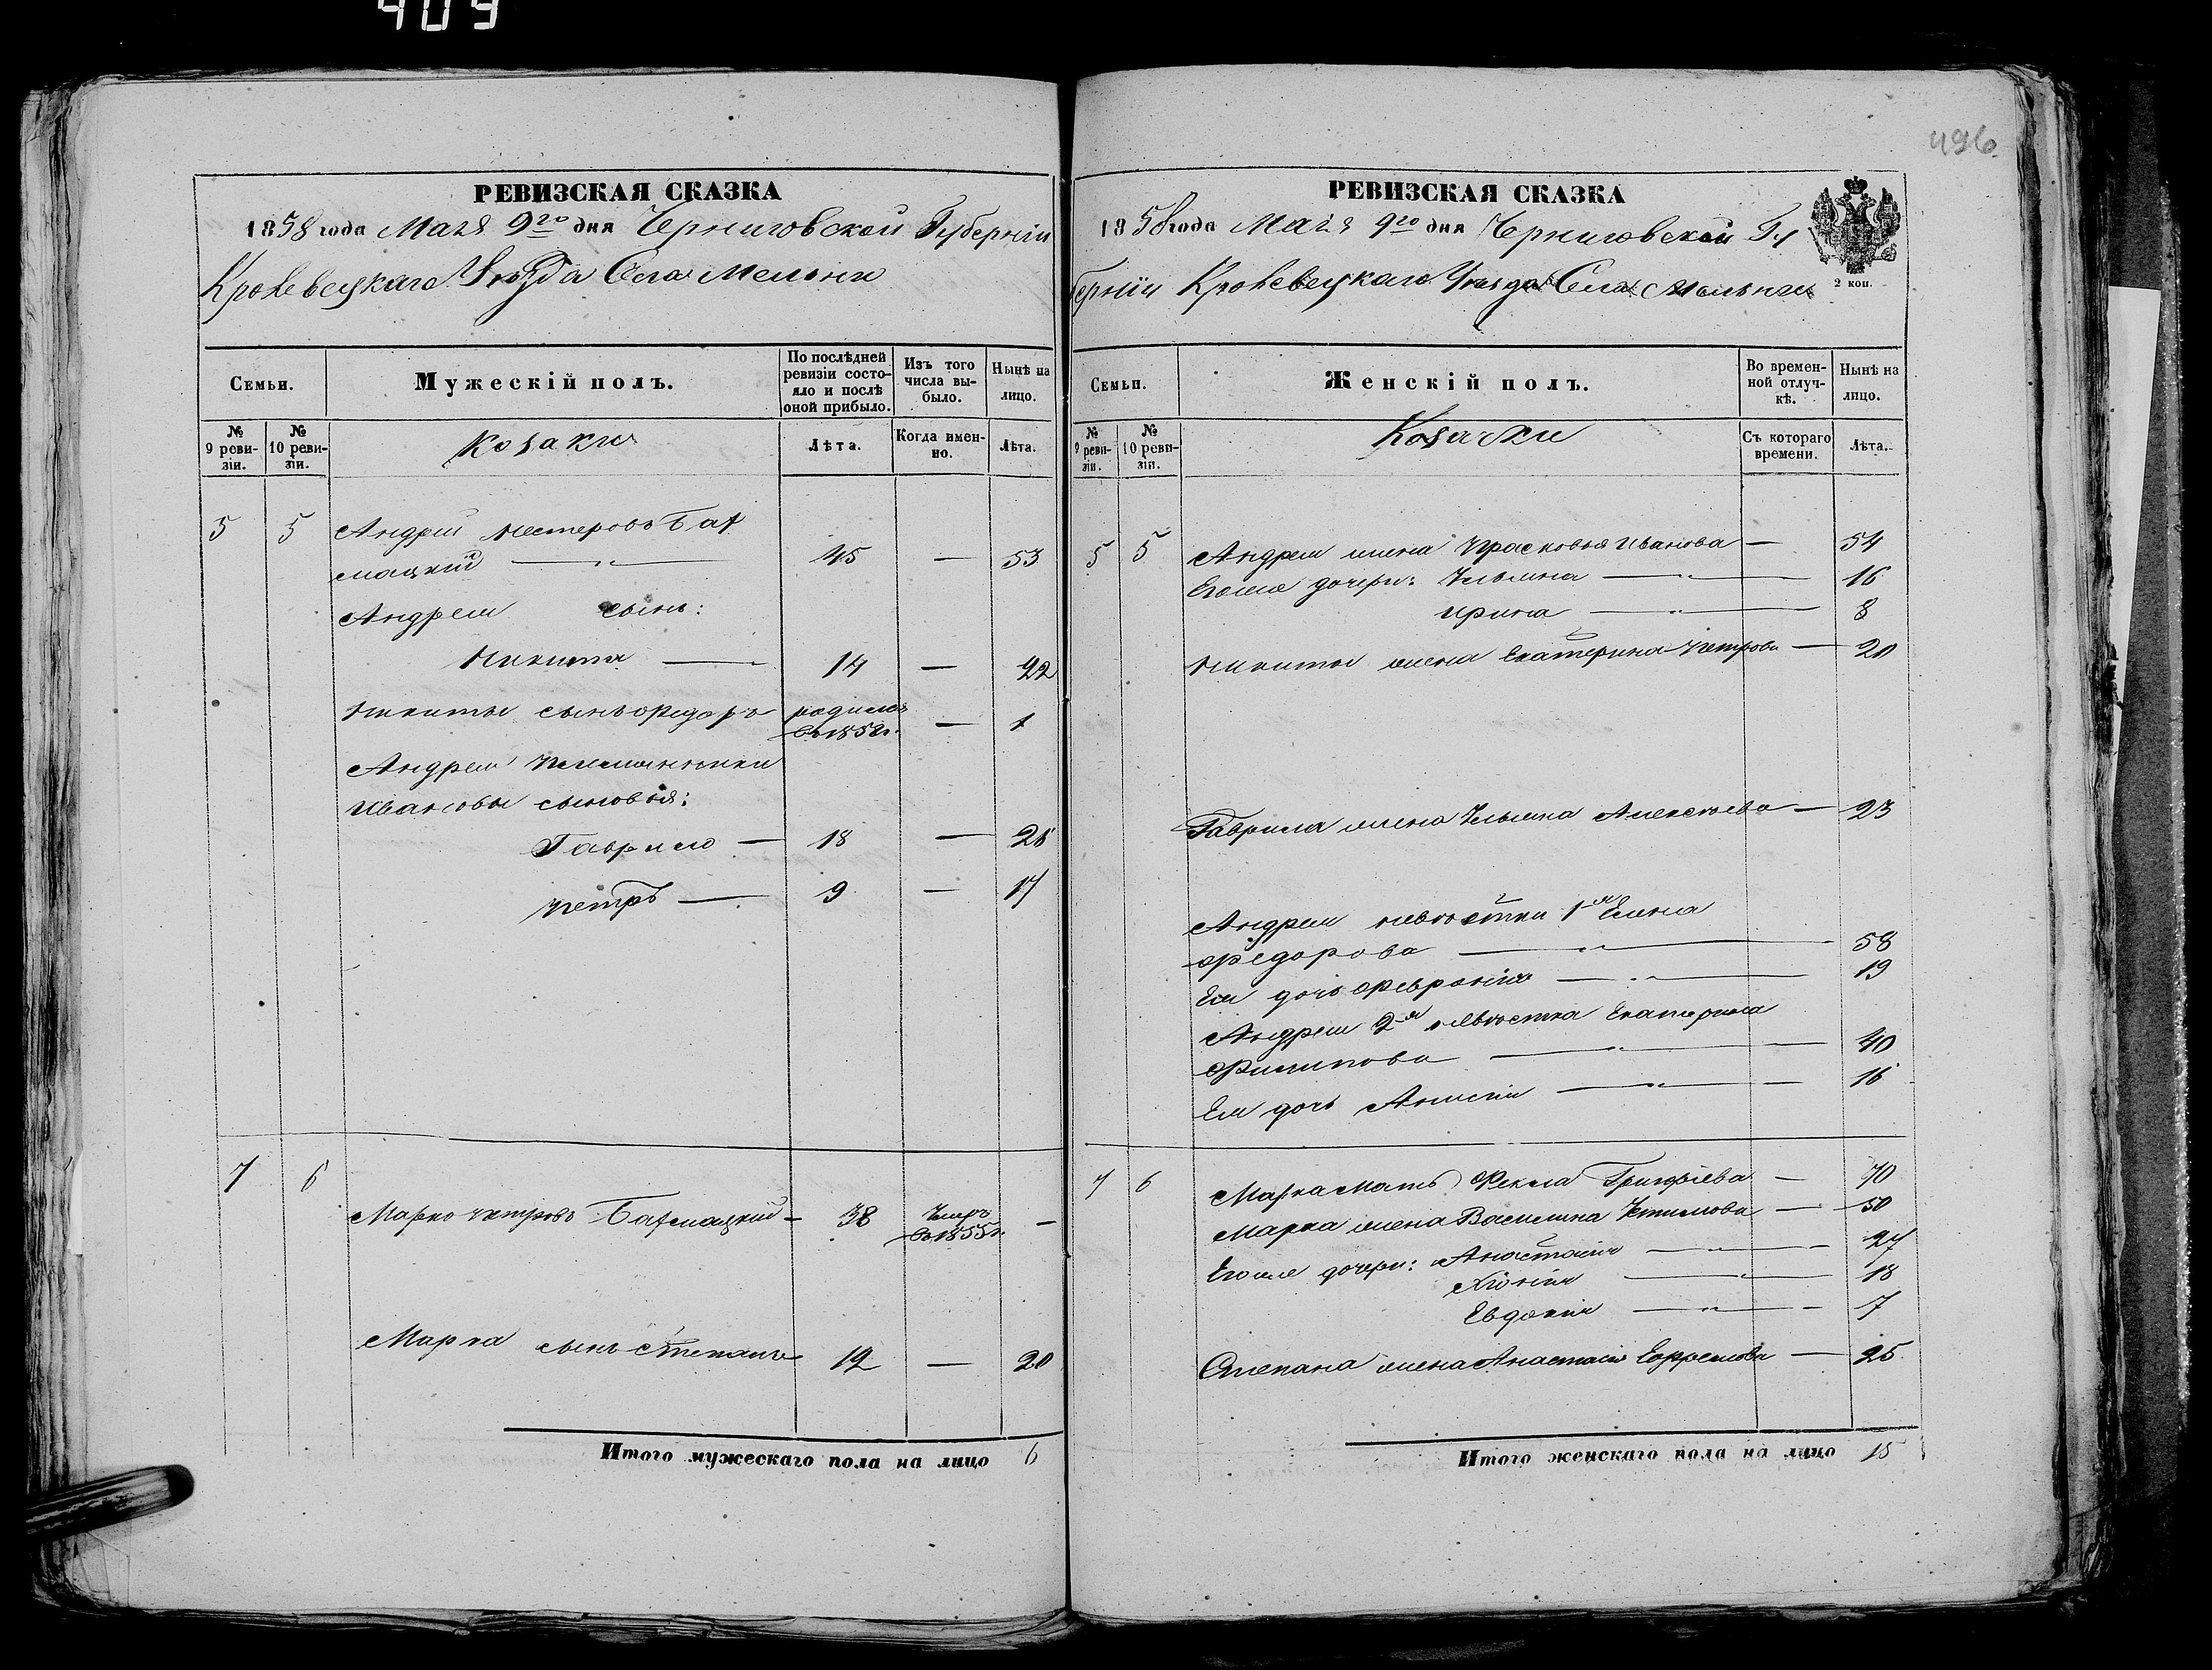 409
496
РЕВИЗСКАЯ СКАЗКА
1858 года Мая 9го дня Черниговской Губерніи
Кролевецкаго Уѣзда Села Мельни
Семьи.
Мужескій полъ.
По послѣдней ревизіи состояло и послѣ оной прибыло.
Изъ того числа выбыло.
Нынѣ на лицо.
№ 9 ревизіи.
№ 10 ревизіи.
Козаки
Лѣта.
Когда именно.
Лѣта.
5 5 Андрей Нестеровъ Бат
мацкій — „ — 45 — 53
Андрея сынъ:
Никита — 14 — 22
Никиты сынъ Федоръ родился въ 185 г. — 1
Андрея племянники
Ивановы сыновья:
Гаврило — 18 — 26
Петръ — 9 — 17
7 6 Марко Петровъ Батмацкій — 38 Умеръ въ 1855 г. —
Марка сынъ Степанъ 12 — 20
Итого мужескаго пола на лицо 6
РЕВИЗСКАЯ СКАЗКА
1858 года Мая 9го дня Черниговской Гу
берніи Кролевецкаго Уѣзда Села Мельни
2 коп.
Семьи.
Женскій полъ.
Во временной отлучкѣ.
Нынѣ на лицо.
№ 9 ревизіи.
№ 10 ревизіи.
Козачки
Съ котораго времени.
Лѣта.
5 5 Андрея жена Прасковья Иванова — 54
Егоже дочери: Ульяна — „ — 16
Ирина — „ — 8
Никиты жена Екатерина Петрова — 20
Гаврила жена Ульяна Алексѣева — 23
Андрея невѣстки 1я Елена
Федорова — „ — 58
Ея дочь Февронія — „ — 19
Андрея 2я невѣстка Екатерина
Филипова — „ — 40
Ея дочь — „ — 16
7 6 Марка мать Фекла Григорьева — 70
Марка жена Василина — 50
Егоже дочери: Анастасія — „ — 27
Хіонія — „ — 18
Евдокія — „ — 7
Степана жена Анастасія Ефремова — 25
Итого женскаго пола на лицо 15